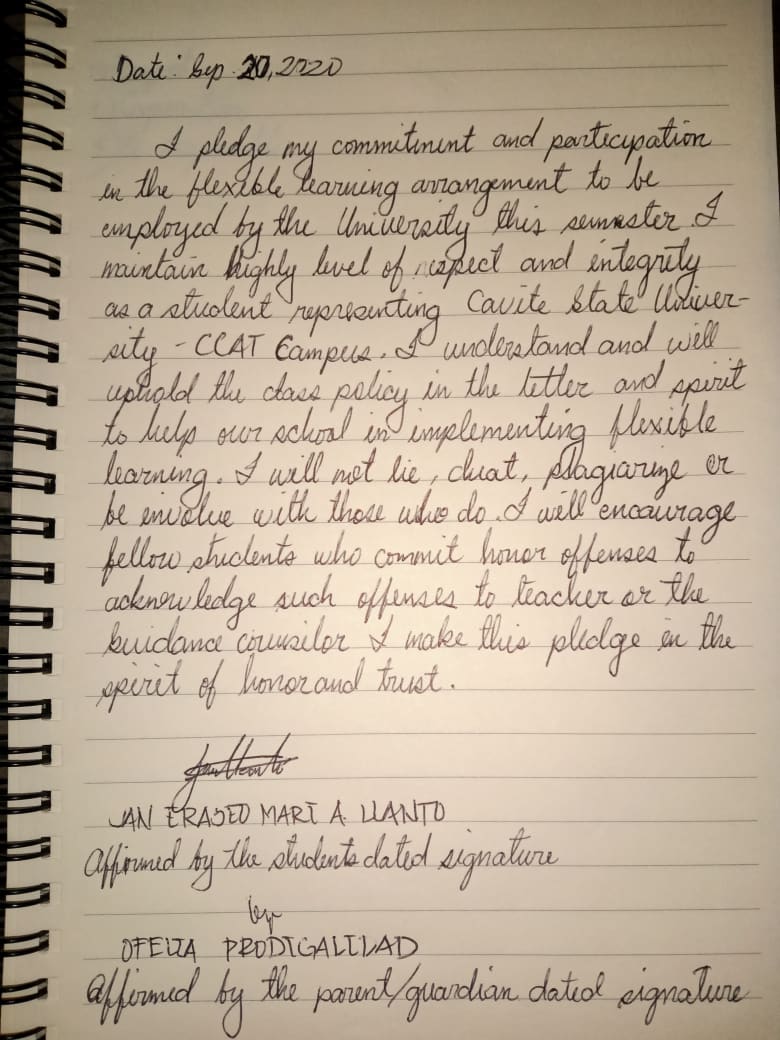 Date: Sep. 20, 2020
I pledge my commitment and participation
in the flexible learning arrangement to be
employed by the University this semester. I
maintain highly level of respect and integrity
as a student representing Cavite State Univer-
sity - CCAT Campus. I understand and will
uphold the class policy in the letter and spirit
to help our school in implementing flexible
learning. I will not lie, cheat, plagiarize or
be involve with those who do. I will encourage
fellow students who commit honor offenses to
acknowledge such offenses to teacher or the
Guidance counsilor I make this pledge in the
spirit of honor and trust.
JAN ERASEO MARI A. LLANTO
Affirmed by the students dated signature
OFELIA PRODIGALILAD
affirmed by the parent/guardian dated signature